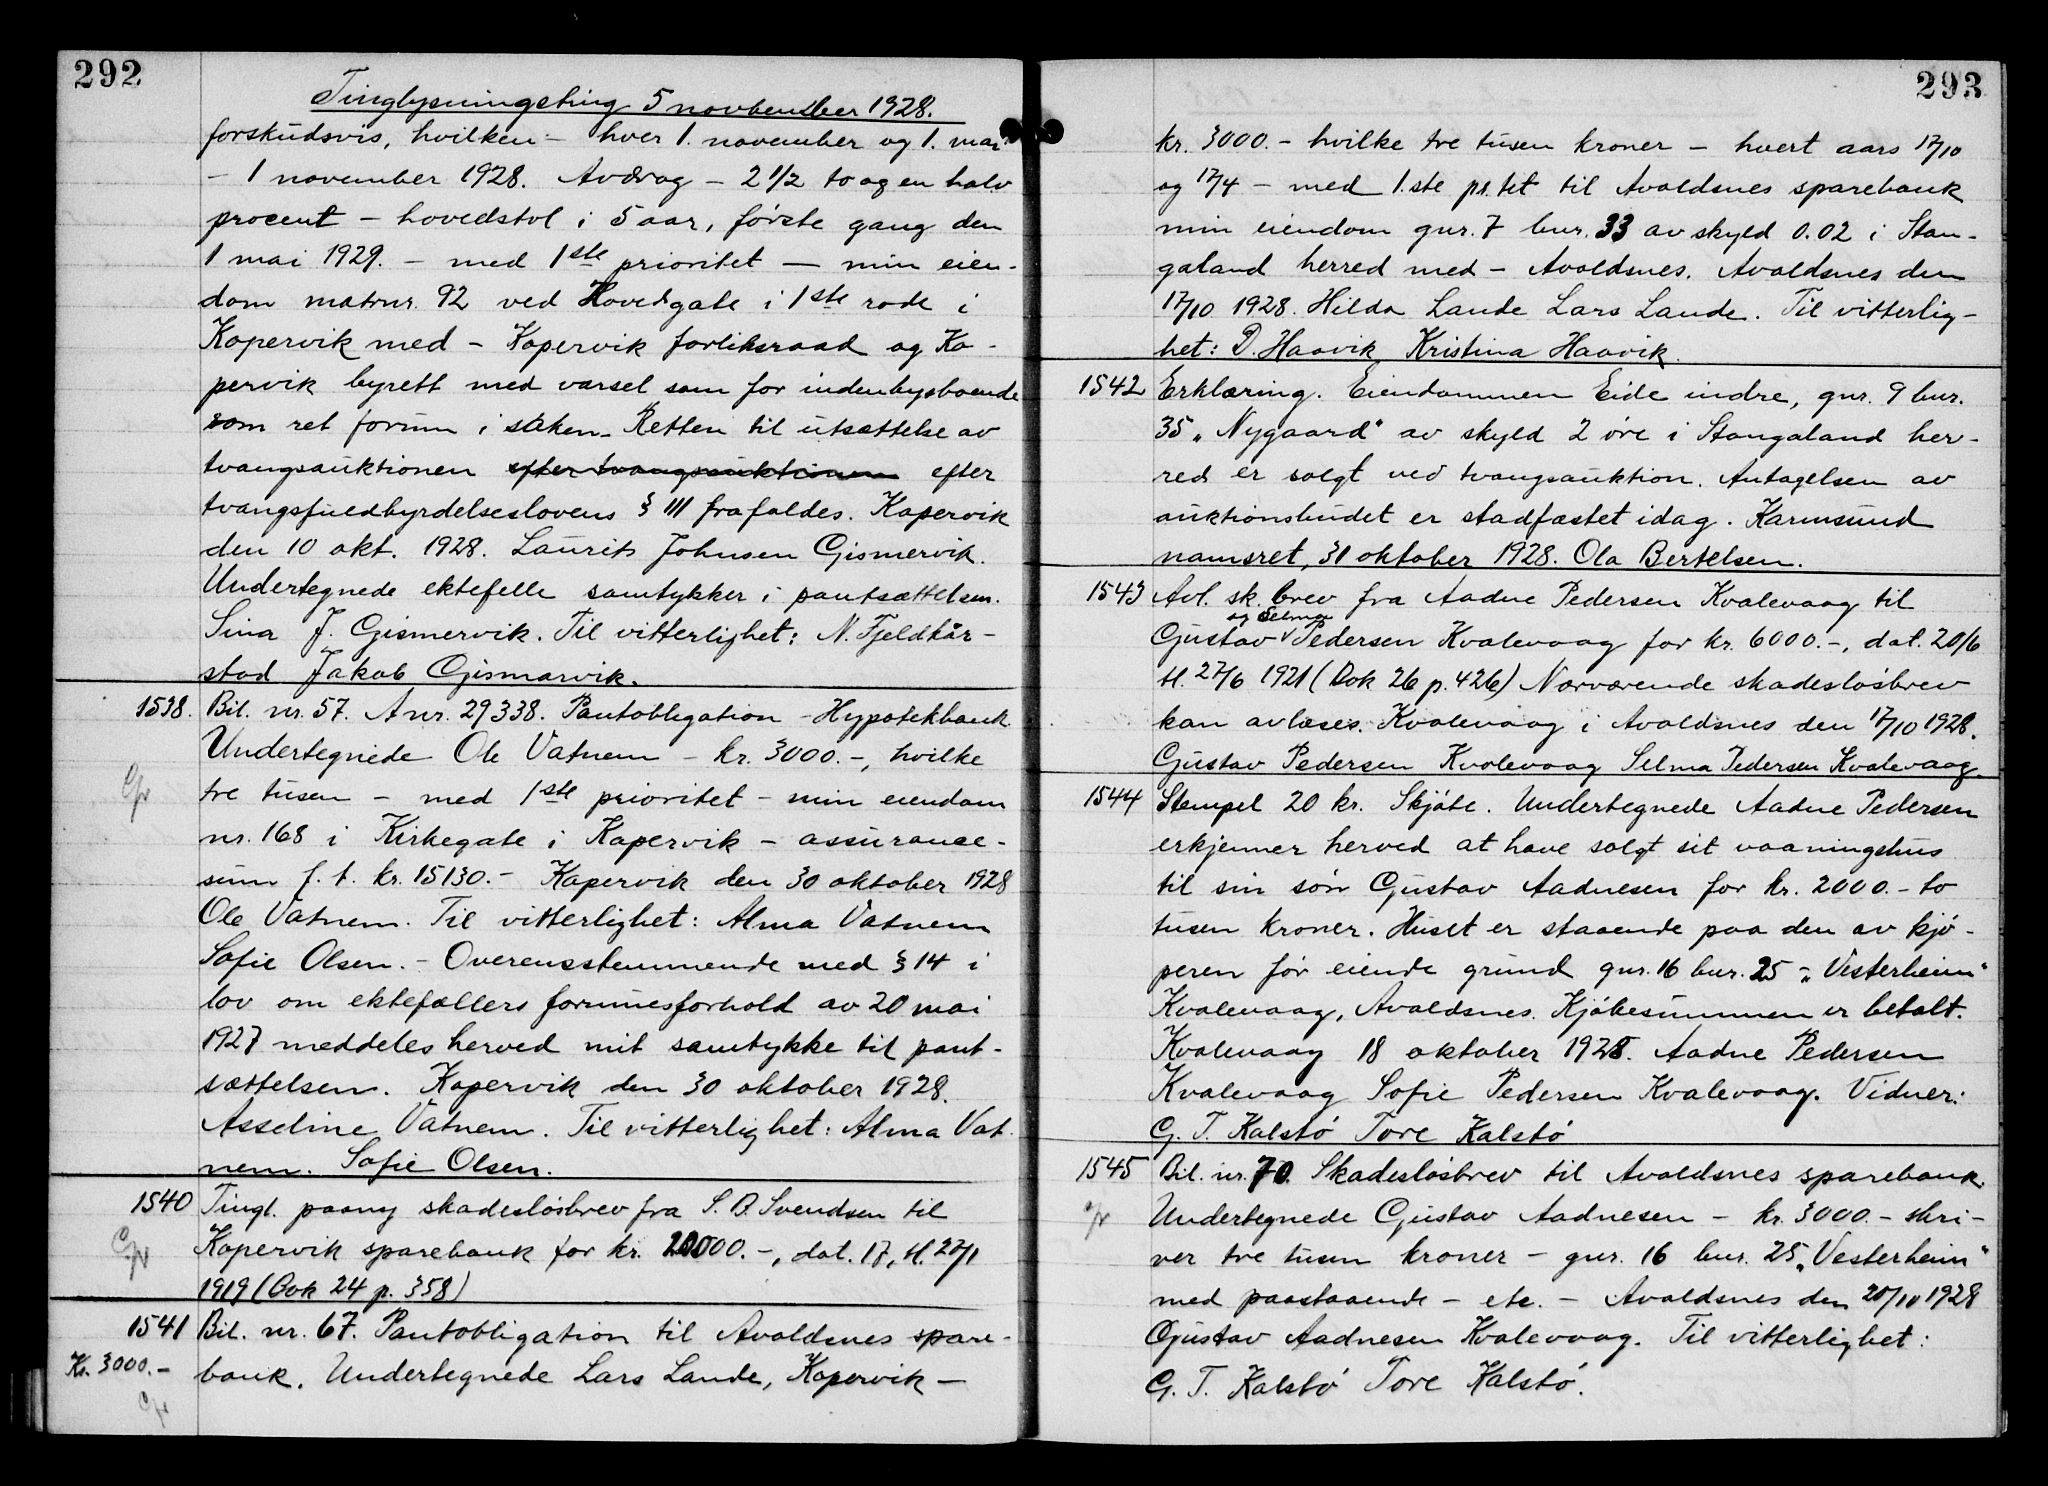 292
Tinglysningsting 5 novbember 1928.
forskudsvis, hvilken – hver 1. november og 1. mai
– 1 november 1928. Avdrag – 2 1/2 to og en halv
procent – hovedstol i 5 aar, første gang den
1 mai 1929. – med 1ste prioritet – min eien-
dom matrnr. 92 ved Hovedgate i 1ste rode i
Kopervik med – Kopervik forliksraad og Ko-
pervik byrett med varsel som for indenbysboende
som ret forum i saken. Retten til utsættelse av
tvangsauktionen efter tvangsauktionen efter
tvangsfuldbyrdelseslovens § 111 frafaldes. Kopervik
den 10 okt. 1928. Laurits Johnsen Gismervik.
Undertegnede ektefelle samtykker i pantsættelsen.
Sina J. Gismervik. Til vitterlighet: N. Fjeldkår-
stad Jakob Gismarvik.
1538. Bil. nr. 57. A nr. 29338. Pantobligation – Hypotekbank
Undertegnede Ole Vatnem – kr. 3000.–, hvilke
tre tusen – med 1ste prioritet – min eiendom
nr. 168 i Kirkegate i Kopervik – assurance-
sum f. t. kr. 15130.– Kopervik den 30 oktober 1928
Ole Vatnem. Til vitterlighet: Alma Vatnem
Sofie Olsen. – Overensstemmende med § 14 i
lov om ektefællers formuesforhold av 20 mai
1927 meddeles herved mit samtykke til pant-
sættelsen. Kopervik den 30 oktober 1928.
Asseline Vatnem. Til vitterlighet: Alma Vat-
nem. Sofie Olsen.
1540 Tingl. paany skadesløsbrev fra S. B. Svendsen til
Kopervik sparebank for kr. 20000.–, dat. 17, tl. 27/1
1919 (Bok 24 p. 358)
1541 Bil. nr. 67. Pantobligation til Avaldsnes spare-
Kr. 3000.– bank. Undertegnede Lars Lande, Kopervik –
293
kr. 3000.– hvilke tre tusen kroner – hvert aars 17/10
og 17/4 – med 1.ste pr.tet til Avaldsnes sparebank
min eiendom gnr. 7 bnr. 33 av skyld 0.02 i Stan-
galand herred med – Avaldsnes. Avaldsnes den
17/10 1928. Hilda Lande Lars Lande. Til vitterlig-
het: D. Haavik Kristina Haavik.
1542 Erklæring. Eiendommen Eide indre, gnr. 9 bnr.
35 „Nygaard" av skyld 2 øre i Stangaland her-
red er solgt ved tvangsauktion. Antagelsen av
auktionsbudet er stadfæstet idag. Karmsund
namsret, 31 oktober 1928. Ola Bertelsen.
1543 Avl. sk. brev fra Aadne Pedersen Kvalevaag til
og Selma
Gustav Pedersen Kvalevaag for kr. 6000.–, dat. 20/6
tl. 27/6 1921 (Bok 26 p. 426) Nærværende skadesløsbrev
kan avlæses. Kvalevaag i Avaldsnes den 17/10 1928.
Gustav Pedersen Kvalevaag Selma Pedersen Kvalevaag.
1544 Stempel 20 kr. Skjøte. Undertegnede Aadne Pedersen
erkjenner herved at have solgt sit vaaningshus
til sin søn Gustav Aadnesen for kr. 2000.– to
tusen kroner. Huset er staaende paa den av kjø-
peren før eiende grund gnr. 16 bnr. 25 – „Vesterheim"
Kvalevaag, Avaldsnes. Kjøbesummen er betalt.
Kvalevaag 18 oktober 1928. Aadne Pedersen
Kvalevaag Sofie Pedersen Kvalevaag. Vidner:
G. T. Kalstø Tore Kalstø
1545 Bil. nr. 70. Skadesløsbrev til Avaldsnes sparebank.
Undertegnede Gustav Aadnesen – kr. 3000.– skri-
ver tre tusen kroner – gnr. 16 bnr. 25 „Vesterheim"
med paastaaende – etc. – Avaldsnes den 20/10 1928
Gustav Aadnesen Kvalevaag. Til vitterlighet:
G. T. Kalstø Tore Kalstø.